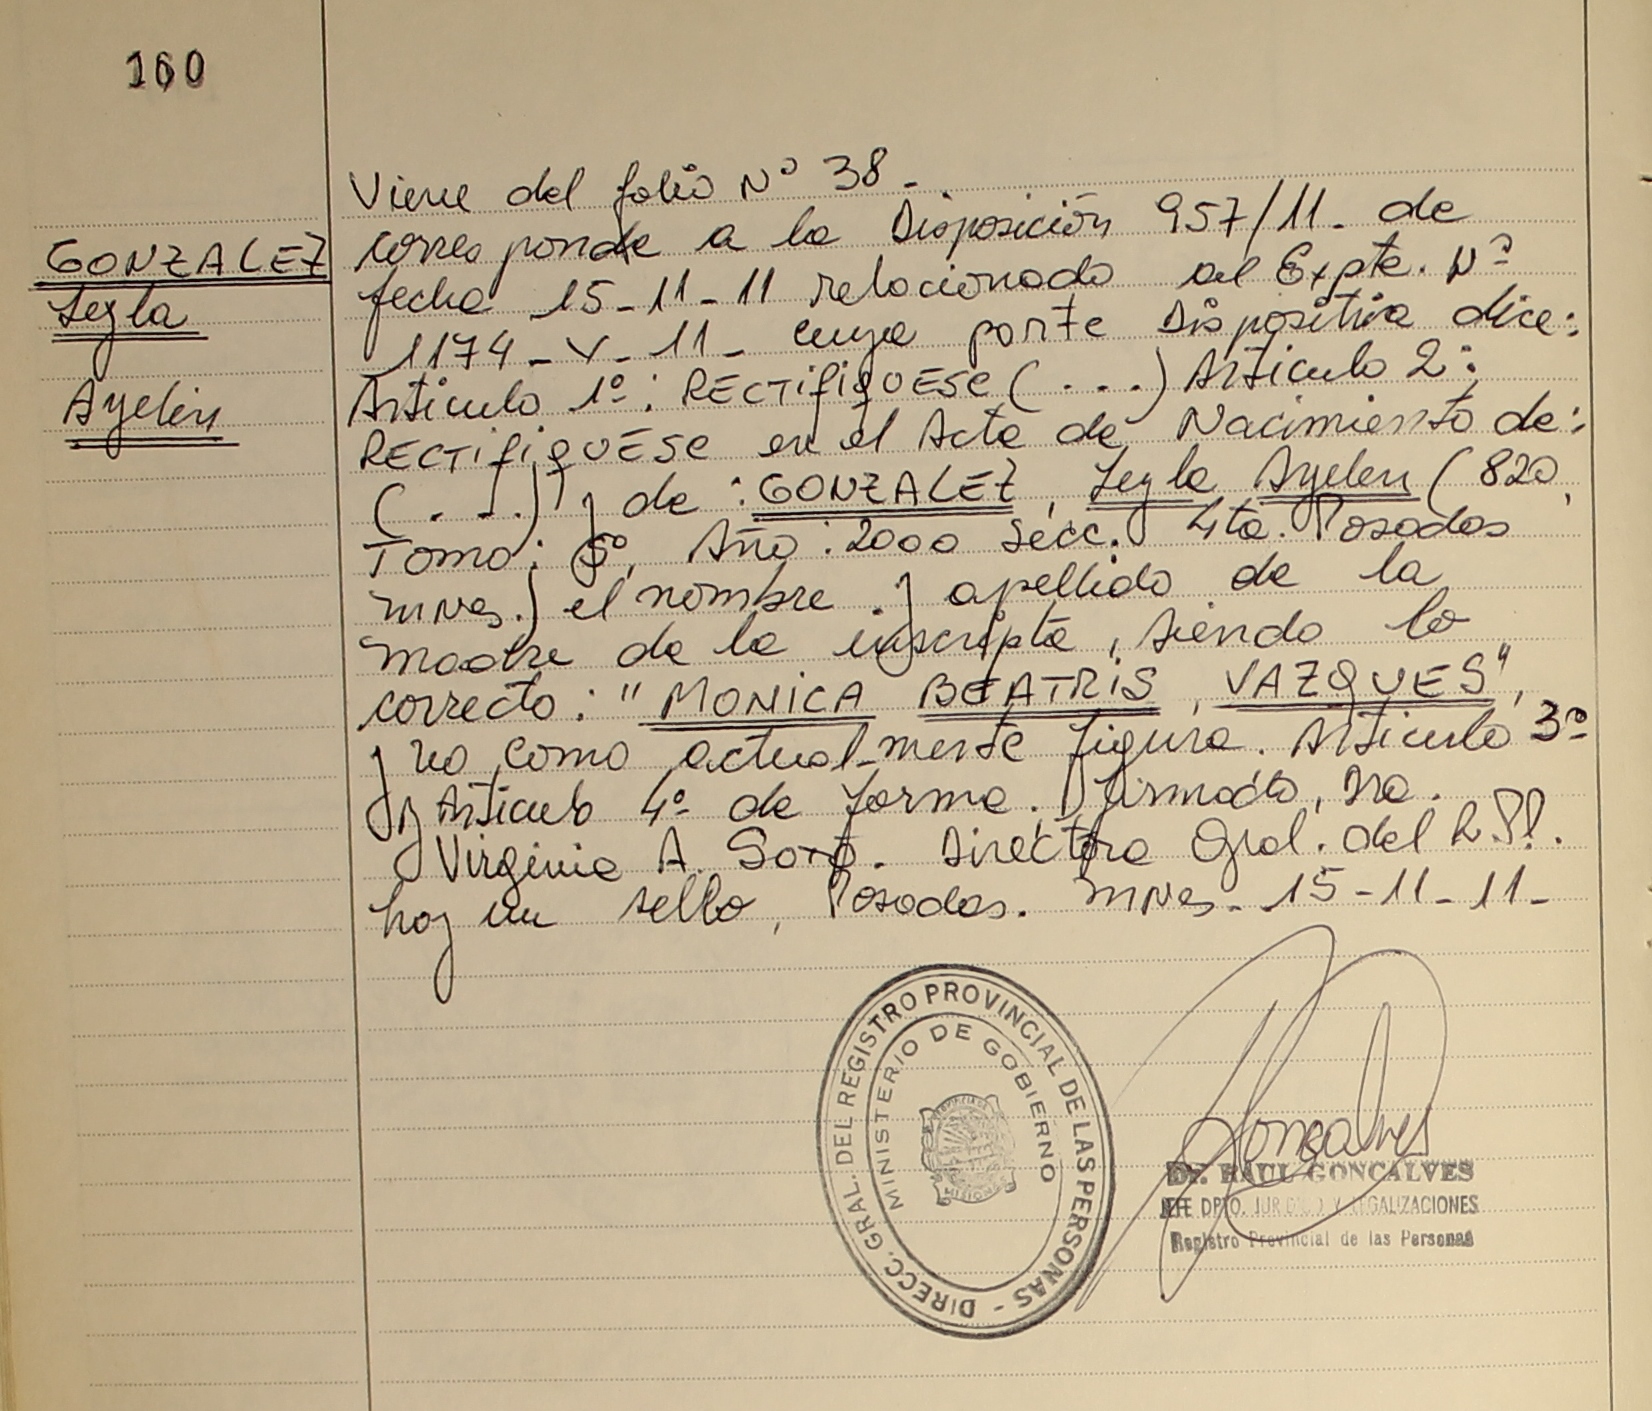 160
GONZALEZ
Leyla
Ayelen
Viene del folio N° 38 -
corresponde a la Disposición 957/11 - de
fecha 15-11-11 relacionado al Expte. N°
1174 - V - 11 - cuya parte Dispositiva dice:
Articulo 1°: RECTIFIQUESE (...) Articulo 2:
RECTIFIQUESE en el Acta de Nacimiento de:
(...) y de: GONZALEZ, Leyla Ayelen (820,
Tomo: 5°, Año: 2000 Secc. 4ta. Posadas
Mnes.) el nombre y apellido de la
madre de la inscripta, siendo lo
correcto: "MONICA BEATRIS, VAZQUES",
y no como actual-mente figura. Articulo 3°
y Articulo 4° de forma. Firmado, Dra.
Virginia A. Soto. Directora Gral. del R.P.P.
hay un sello, Posadas. Mnes - 15-11-11-
DIRECC. GRAL. DEL REGISTRO PROVINCIAL DE LAS PERSONAS -
MINISTERIO DE GOBIERNO
Goncalves
Dr. RAUL GONCALVES
JEFE DPTO. JURIDICO Y LEGALIZACIONES
Registro Provincial de las Personas